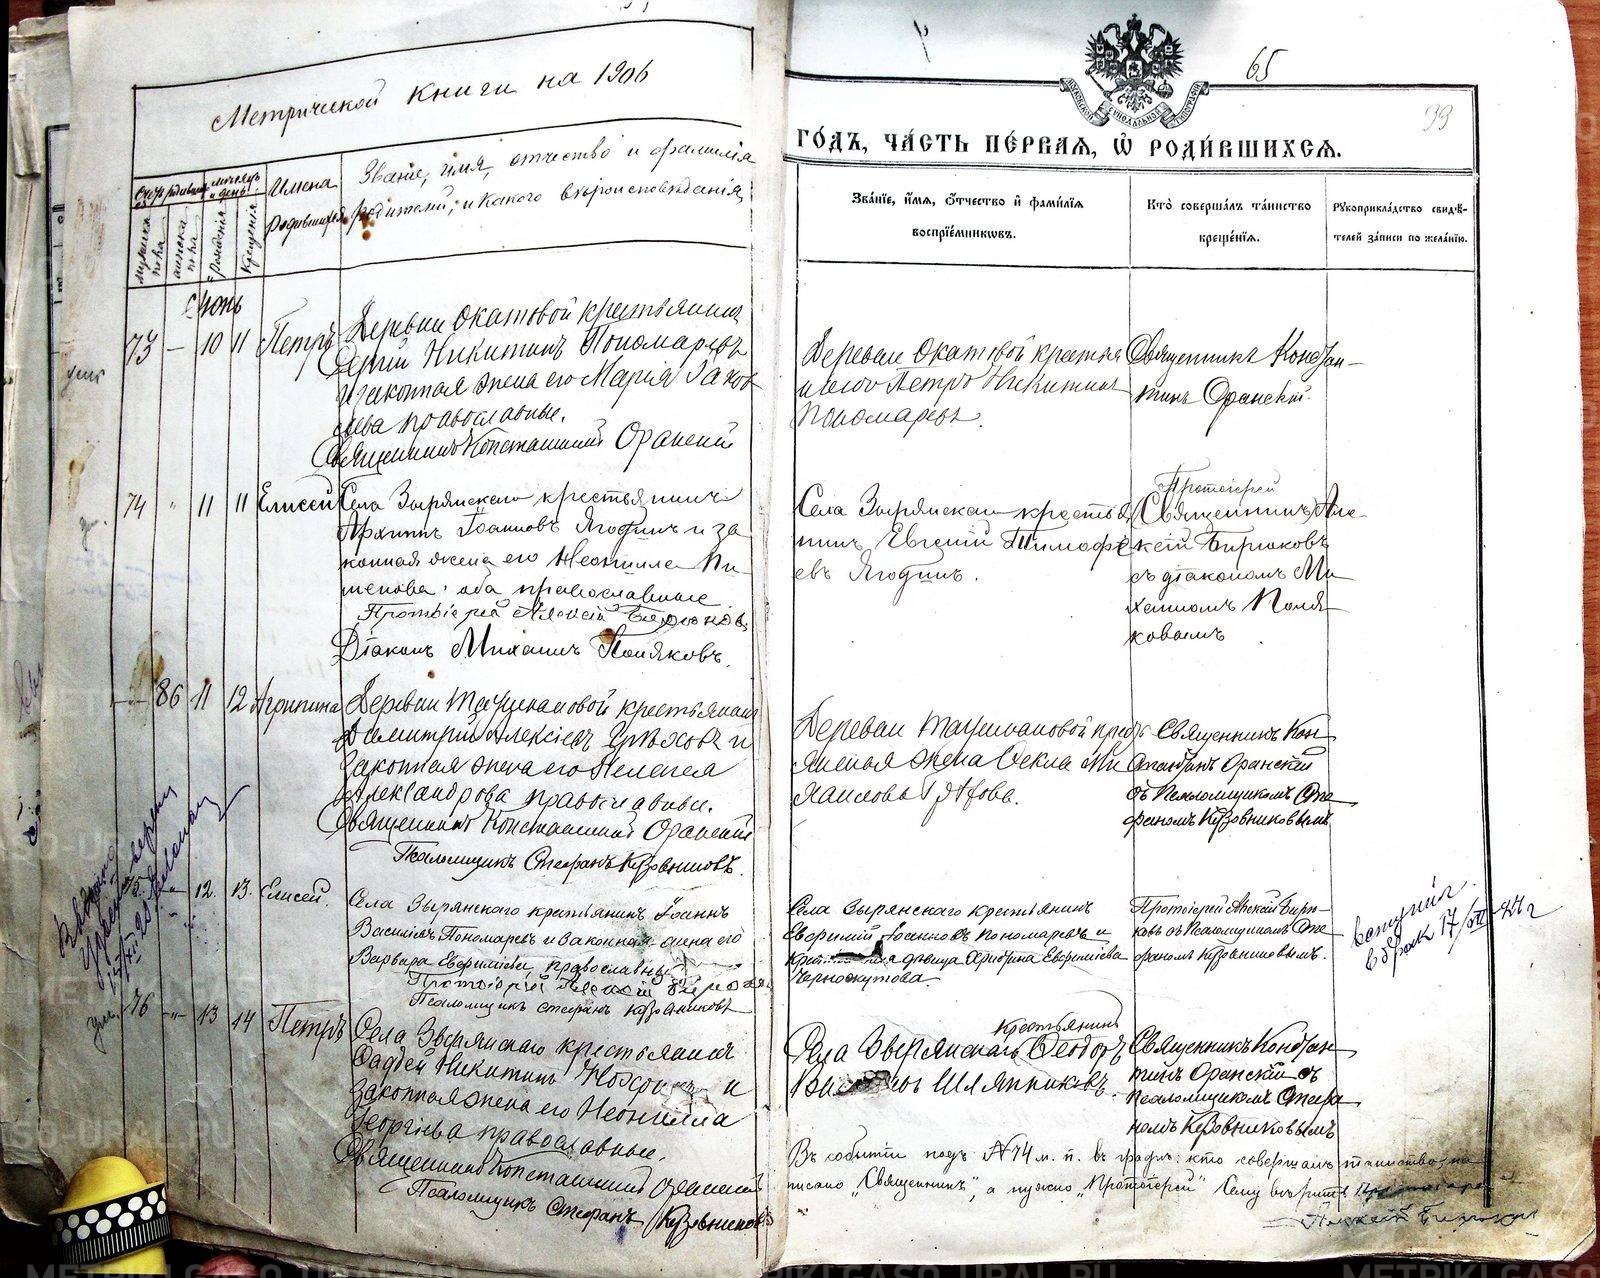 65
99
Метрической книги на 1906
ГОДЪ, ЧАСТЬ ПЕРВАЯ, Ѿ РОДИВШИХСЯ.
мужеска пола
женска пола
рожденія
крещенія
Имена родившихся
Званіе, имя, отчество и фамилія
родителей, и какого вѣроисповѣданія
Званіе, имя, отчество и фамилія
воспріемниковъ.
Кто совершалъ таинство
крещенія.
Рукоприкладство свидѣ-
телей записи по желанію.
Іюнь
73 — 10 11 Петръ
Деревни Окатовой крестьянинъ
Сергій Никитинъ Пономаревъ
и законная жена его Марія
православные.
Священникъ Константинъ Оранскій
Деревни Окатовой крестья
Петръ Никитинъ
Пономаревъ.
Священникъ Констан-
тинъ Оранскій.
74 " 11 11 Елисей
Села Зырянскаго крестьянинъ
Архипъ Іоанновъ Ягодинъ и за
конная жена его Неонила Пи
менова, оба православные
Протоіерей Алексій Бирюковъ
Діаконъ Михаилъ Поляковъ.
Села Зырянскаго крестья
нинъ Евгеній Тимофе
евъ Ягодинъ.
Протоіерей
(Священникъ) Але
ксій Бирюковъ
съ діакономъ Ми
хаиломъ Поля
ковымъ
— 86 11 12 Агрипина
Деревни Таушкановой крестьянинъ
Димитрій Алексіевъ Грѣховъ и
законная жена его Пелагея
Александрова православные.
Священникъ Константинъ Оранскій
Псаломщикъ Стефанъ Кузовниковъ.
Деревни Таушкановой крестъ
янская жена Ѳекла Ми
хаилова
Священникъ Кон
стантинъ Оранскій
съ Псаломщикомъ Сте
фаномъ Кузовниковымъ
75 " 12. 13. Елисей.
Села Зырянскаго крестьянинъ Іоаннъ
Василіевъ Пономаревъ и законная жена его
Варвара Евфиміева, православные
Протоіерей Алексій Бирюковъ
Псаломщикъ Стефанъ Кузовниковъ
Села Зырянскаго крестьянинъ
Евфимій Іоанновъ Пономаревъ и
дѣвица Христина Евфиміева
Черноскутова.
Протоіерей Алексій Бирю-
ковъ съ Псаломщикомъ Сте
фаномъ Кузовниковымъ.
вступил
в брак 17/VII-27 г
ум. 76 " 13 14 Петръ
Села Зырянскаго крестьянинъ
Фаддей Никитинъ и
законная жена его Неонилла
Георгіева православные.
Священникъ Константинъ Оранскій
Псаломщикъ Стефанъ Кузовниковъ
крестьянинъ
Села Зырянскаго Ѳеодоръ
Шляпниковъ.
Священникъ Констан
тинъ Оранскій съ
псаломщикомъ Стефа
номъ Кузовниковымъ
Въ событіи подъ №74 м. п. въ графѣ: кто совершалъ таинство, на
писано "Священникъ", а нужно "Протоіерей" Сему вѣрить
Алексій Бирюковъ